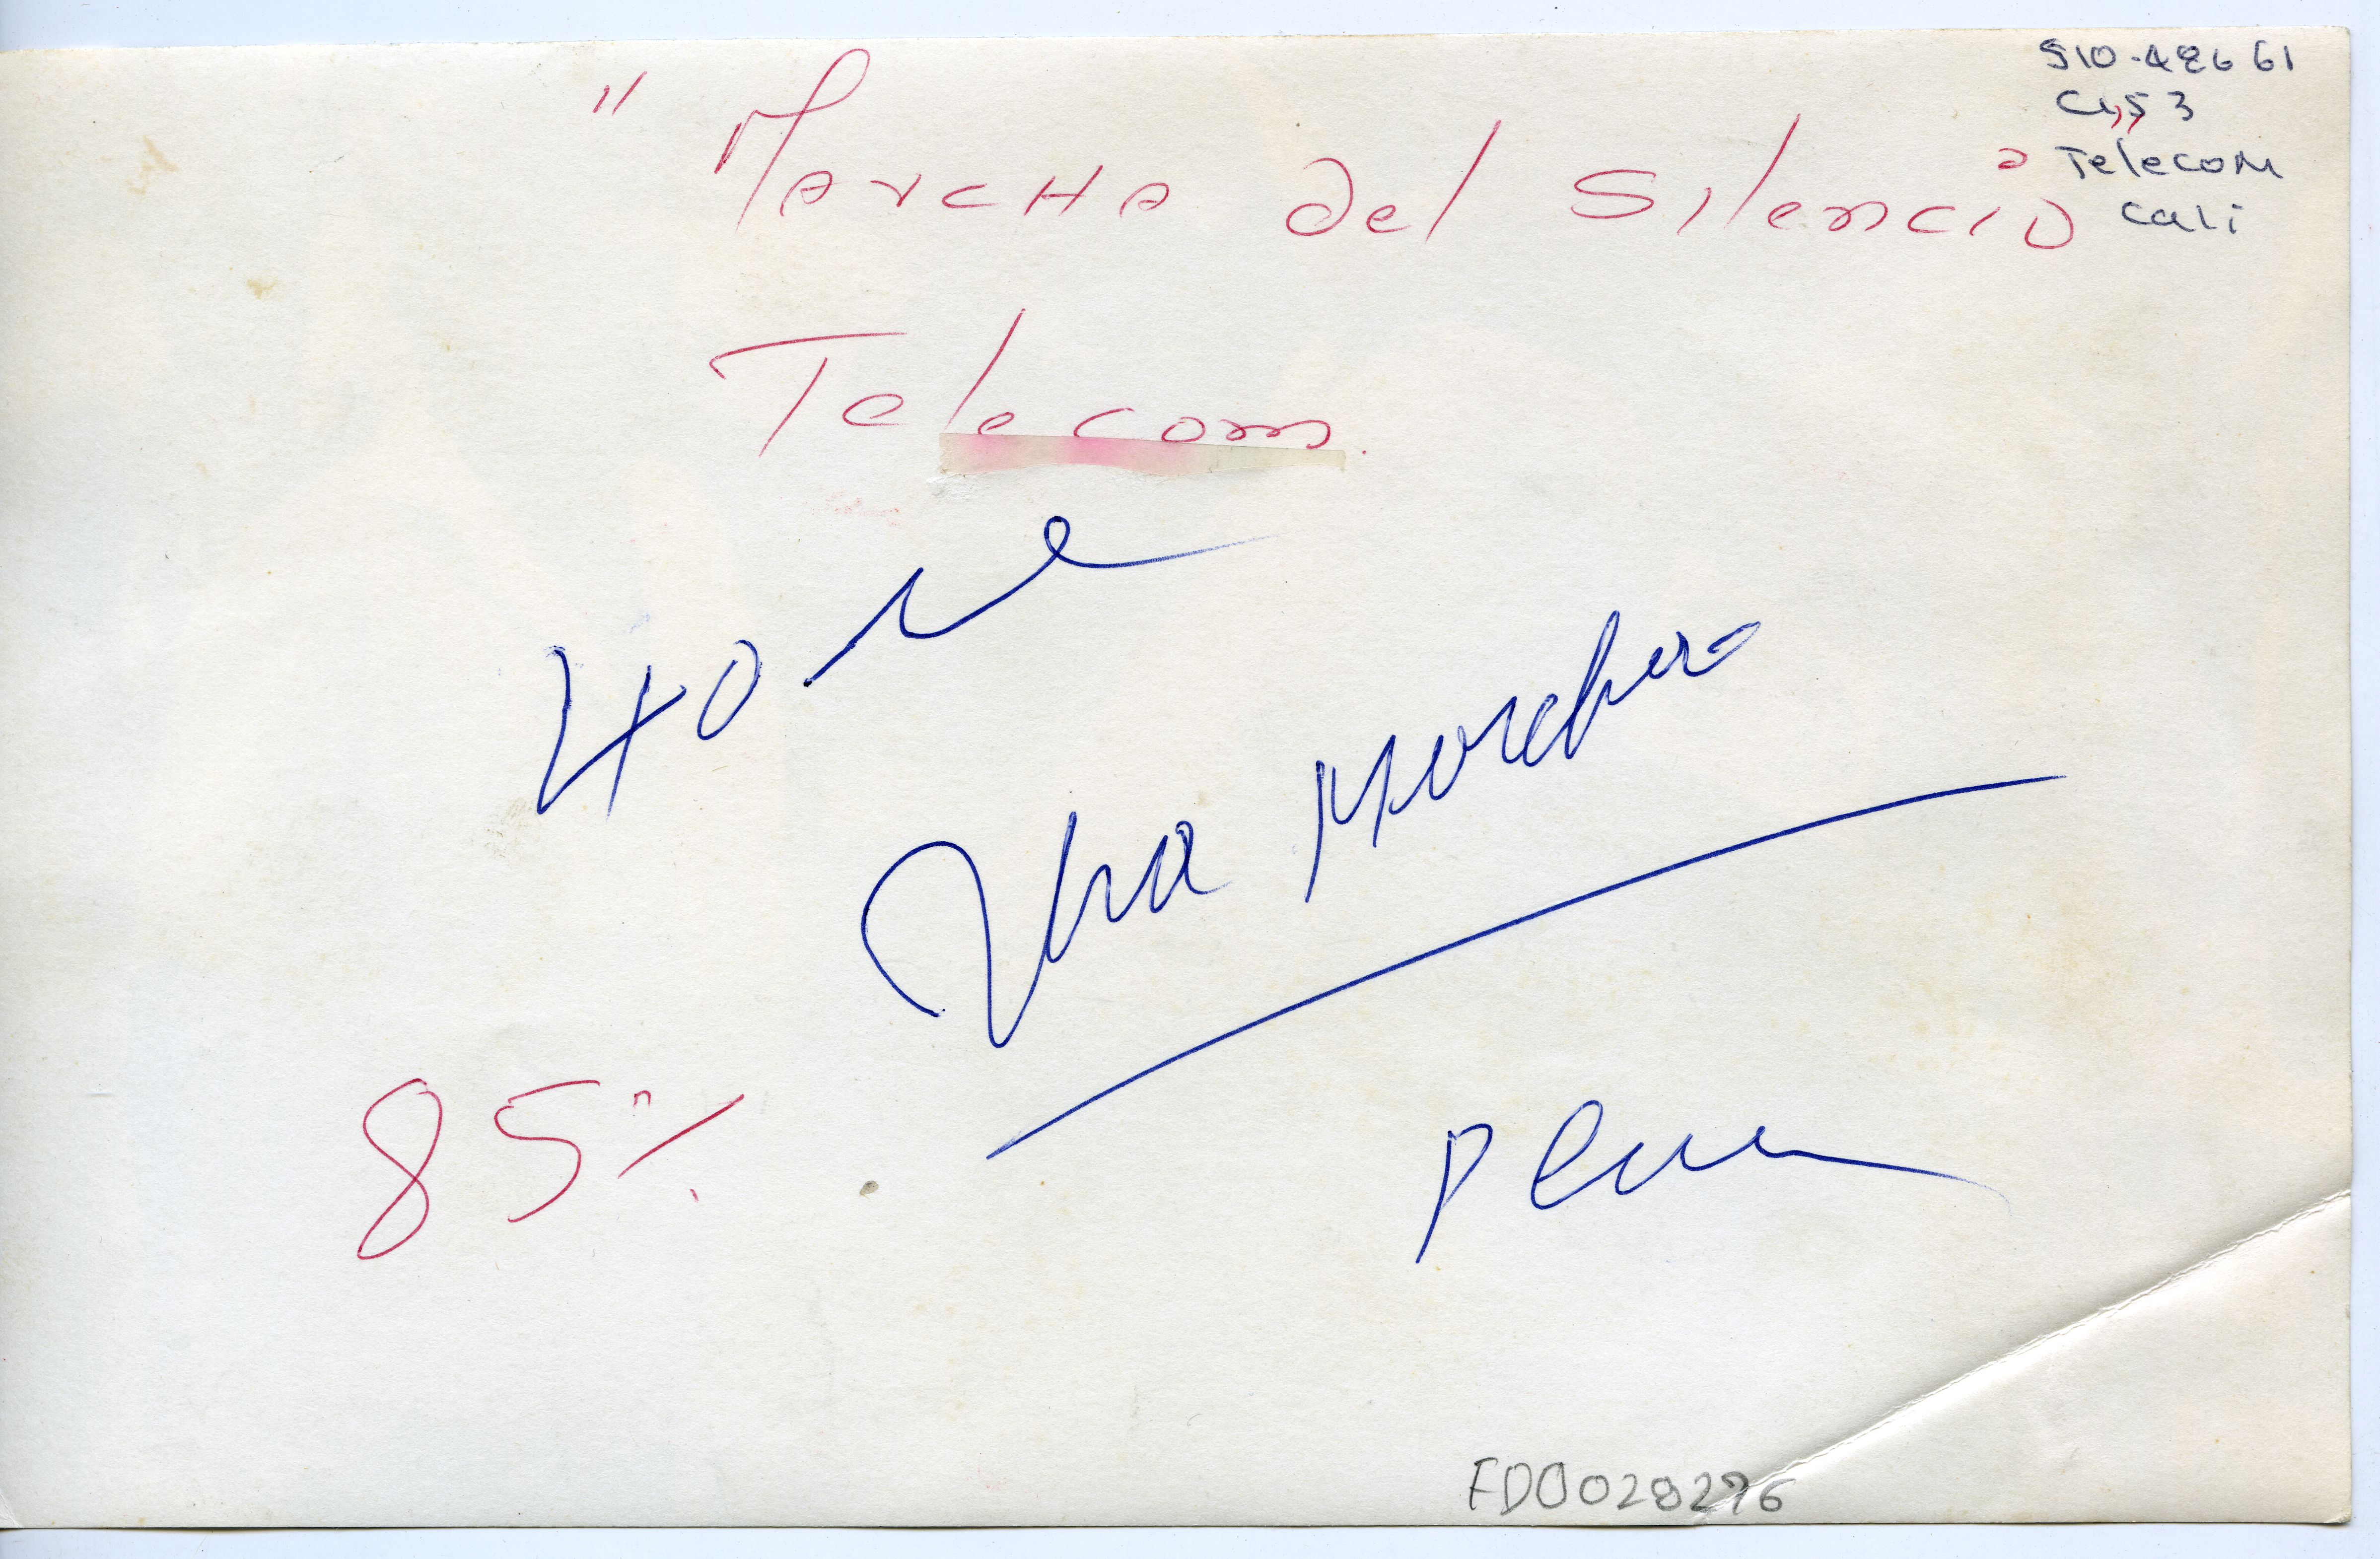 910-48661
C453
Telecom
Cali
"Marcha del Silencio"
Telecom.
40
Una Marcha
85%
FD0028276